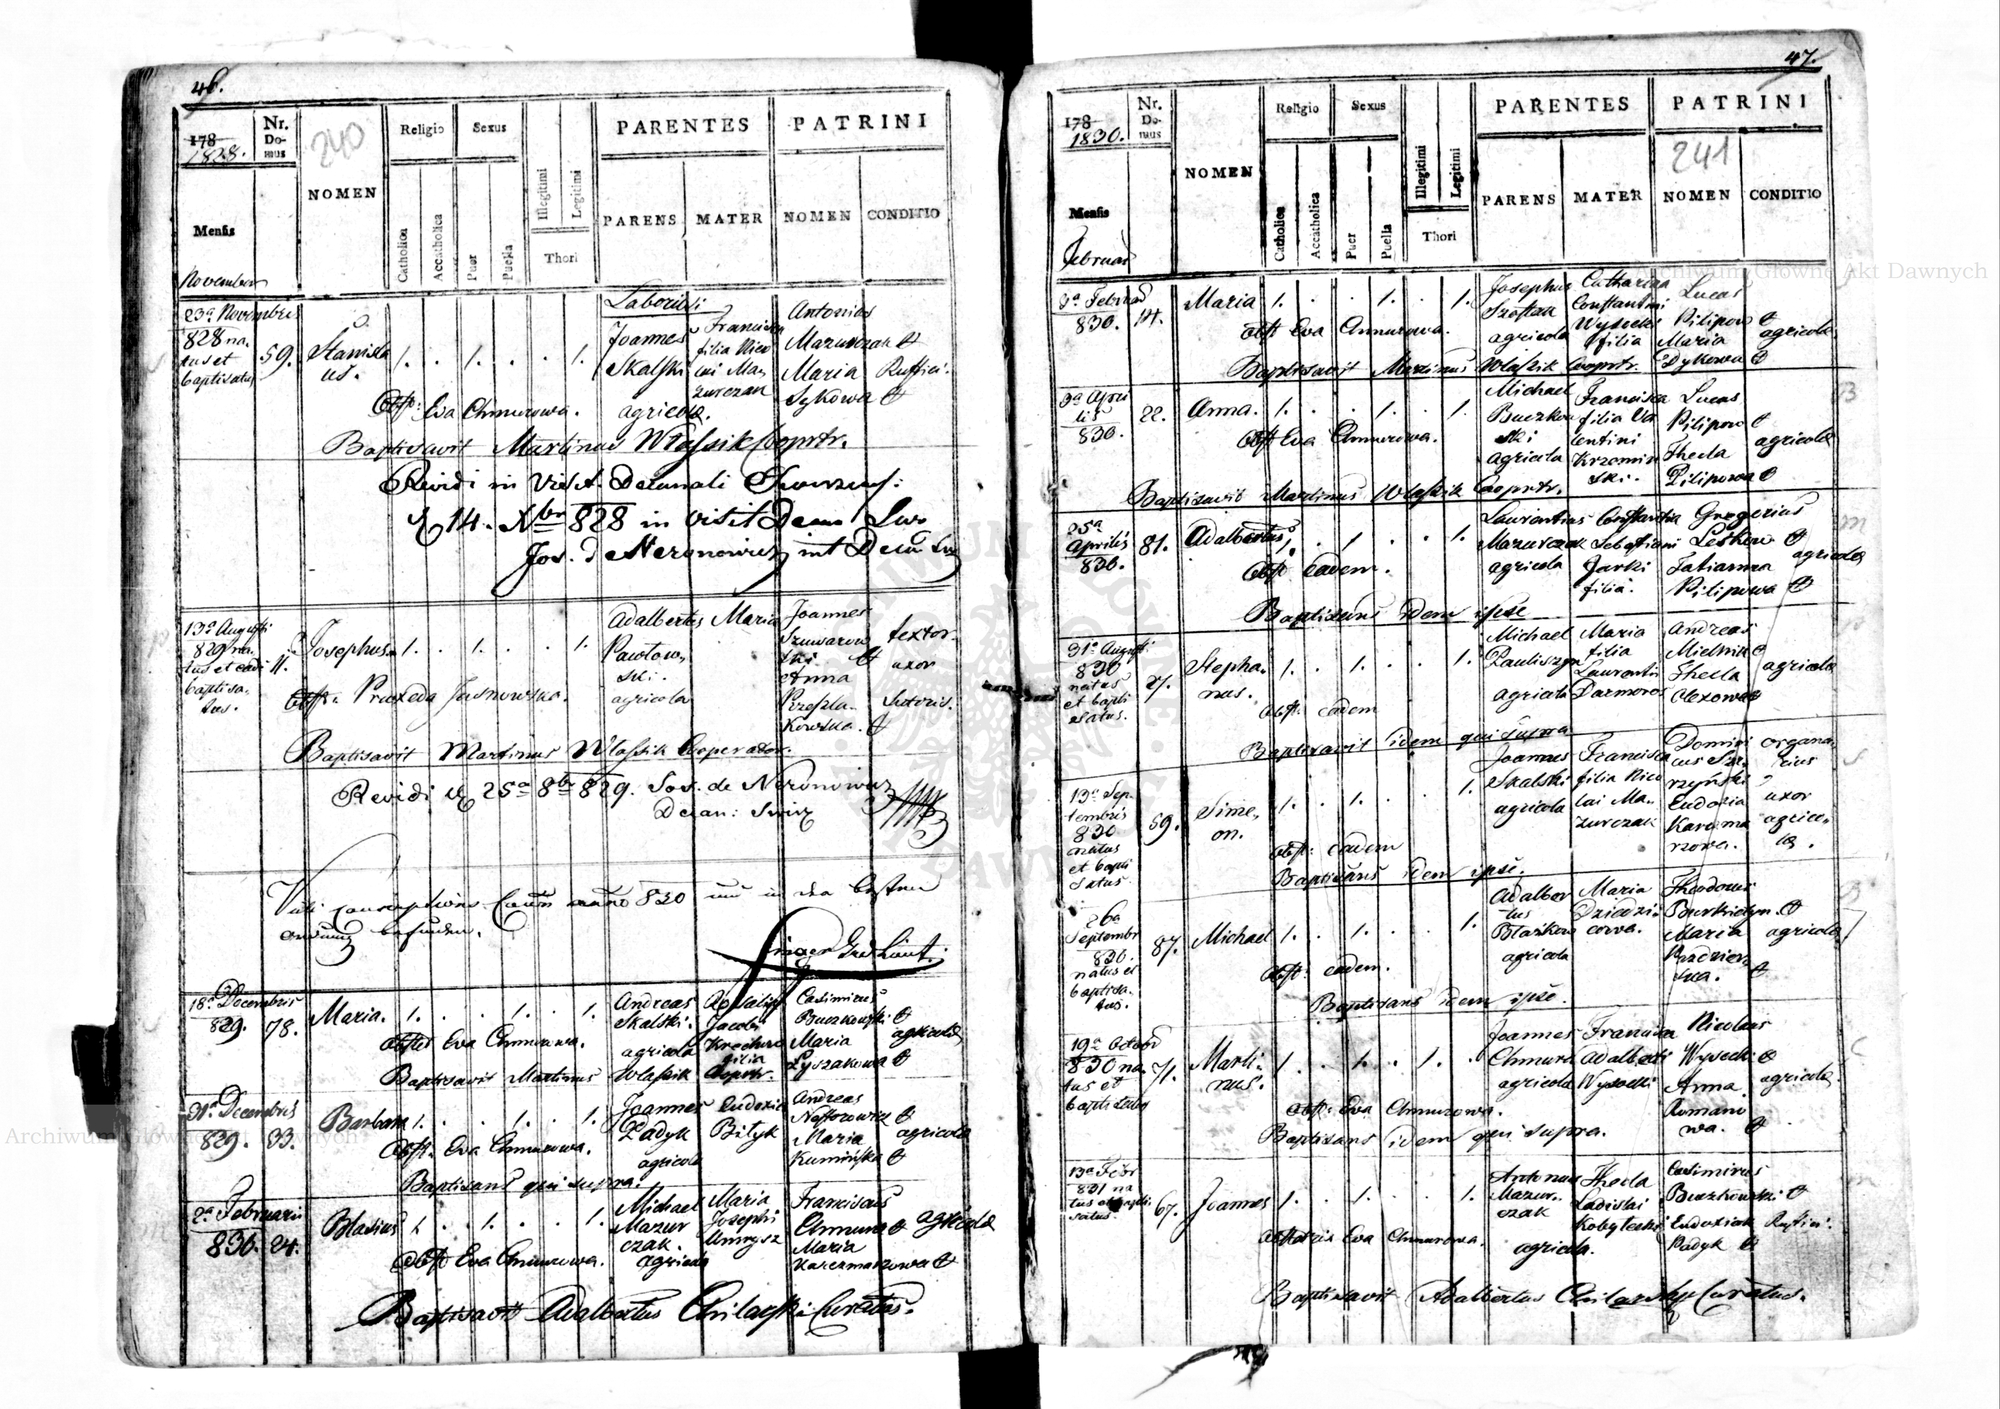 46.
178
1828.
Nr. Do- mus
240
NOMEN
Religio
Sexus
PARENTES
PATRINI
Catholica
Accatholica
Puer
Puella
Illegitimi
Legitimi
Thori
PARENS
MATER
NOMEN
CONDITIO
Mensis
November
23a Novembris
828 na-
tus et
baptisatus
59.
Stanisla
us.
1. . 1. . . 1.
Joannes
Skalski
agricola.
Francisca
filia Nico
lai Ma
zurczak
Antonius
Mazurczak
Maria
Sykowa
Rustici.
Obst: Eva Chmurowa.
Baptisavit Martinus Wlassik Cooprtr.
Revidi in Visit. Decanali
14. Xbr 828 in Visit Decan
Jos. de Neronowicz
13a Augusti
829 na-
tus et eadi
baptisa-
tus.
11.
Josephus
1. . 1. . . 1.
Adalbertus
Pawlow-
ski.
agricola
Maria
Joannes
Szuwarow
ski
Anna
Przeszla-
kowska.
textor.
uxor
sutoris.
Obst: Praxeda Jasnowska.
Baptisavit Martinus Wlassik Cooperator.
Revidi 25a 8br 829. Jos. de Neronowicz
Decan: Swirz
18a Decembris
829.
78.
Maria.
1. . . 1. . 1.
Andreas
Skalski.
agricola
Rosalia
Jacobi
filia
Casimirus
Buczkowski
Maria
Lyszakowa
agricola
Obstet Eva Chmurowa.
Baptisavit Martinus Wlassik Cooprtr.
31a Decembris
829.
33.
Barbara
1. . . 1. . 1.
Joannes
Ladyk
agricola
Eudoxia
Bilyk
Andreas
Nestorowicz
Maria
Kuminska
agricola
Obst: Eva Chmurowa.
Baptisans qui supra.
2a Februarii
830.
24.
Blasius
1. . 1. . . 1.
Michael
Mazur
czak.
agricola
Maria
Josephi
Franciscus
Chmura
Maria
Karczmarzowa
agricola
Obst Eva Chmurowa.
Baptisavit Adalbertus Chilarski Curatus.
47.
178
1830.
Nr. Do- mus
NOMEN
Religio
Sexus
PARENTES
PATRINI
241
Catholica
Accatholica
Puer
Puella
Illegitimi
Legitimi
Thori
PARENS
MATER
NOMEN
CONDITIO
Mensis
Februar
830.
14.
Maria
1. . . 1. . 1.
Josephus
Szostak
agricola
Catharina
Constantini
Wysocki
filia
Lucas
Pilipow
Maria
Dykowa
agricola
Obst Eva Chmurowa.
Baptisavit Martinus Wlassik Cooprtr.
9a Apri
lis
830.
22.
Anna.
1. . . 1. . 1.
Michael
Buczkow
ski
agricola
Francisca
filia Va
lentini
Krzemin
ski.
Lucas
Pilipow
Thecla
Pilipowa
agricola
Obst Eva Chmurowa.
Baptisavit Martinus Wlassik Cooprtr.
25a
Aprilis
830.
81.
Adalbertus
1. . 1. . . 1.
Laurentius
Mazurczak
agricola
Constantia
Sebastiani
Jurki
filia.
Gregorius
Leskow
Tatianna
Pilipowa
agricola
Obst: eadem.
Baptisans idem ipse
31a Augusti
830
natus
et bapti
satus.
27.
Stepha-
nus.
1. . 1. . . 1.
Michael
Pauliszyn
agricola
Maria
filia
Laurentii
Darmoros
Andreas
Mielnik
Thecla
Olexowa
agricola
Obst: eadem
Baptisavit idem qui supra
13a Sep-
tembris
830
natus
et bapti
satus.
59.
Sime-
on.
1. . 1. . . 1.
Joannes
Skalski
agricola
Francisca
filia Nico
lai Ma-
zurczak
Domini
cus
Eudoxia
organa-
rius
uxor
agrico-
la.
Obst: eadem
Baptisans idem ipse.
26a
Septembr
830.
natus et
baptisa-
tus.
87.
Michael
1. . 1. . . 1.
Adalber
tus
Blazkow
agricola
Maria
Dziedzi-
cowa.
Theodorus
Maria
agricola
Obst: eadem.
Baptisans idem ipse.
19a Octobr
830 na-
tus et
baptisatus
71.
Marti-
nus.
1. . 1. . 1. .
Joannes
Chmura
agricola
Francisca
Adalberti
Wysocki
Nicolaus
Wysocki
Anna
Romano
wa.
agricola.
Obst: Eva Chmurowa.
Baptisans idem qui supra.
13a Febr
831 na
tus et bapti
satus.
67.
Joannes
1. . 1. . . 1.
Antonius
Mazur-
czak
agricola.
Thecla
Ladislai
Kobylecki
Casimirus
Buczkowski
Eudoxia
Ladyk
Rustici.
Obstetrix Eva Chmurowa.
Baptisavit Adalbertus Chilarski Curatus.
Archiwum Główne Akt Dawnych
Archiwum Główne Akt Dawnych